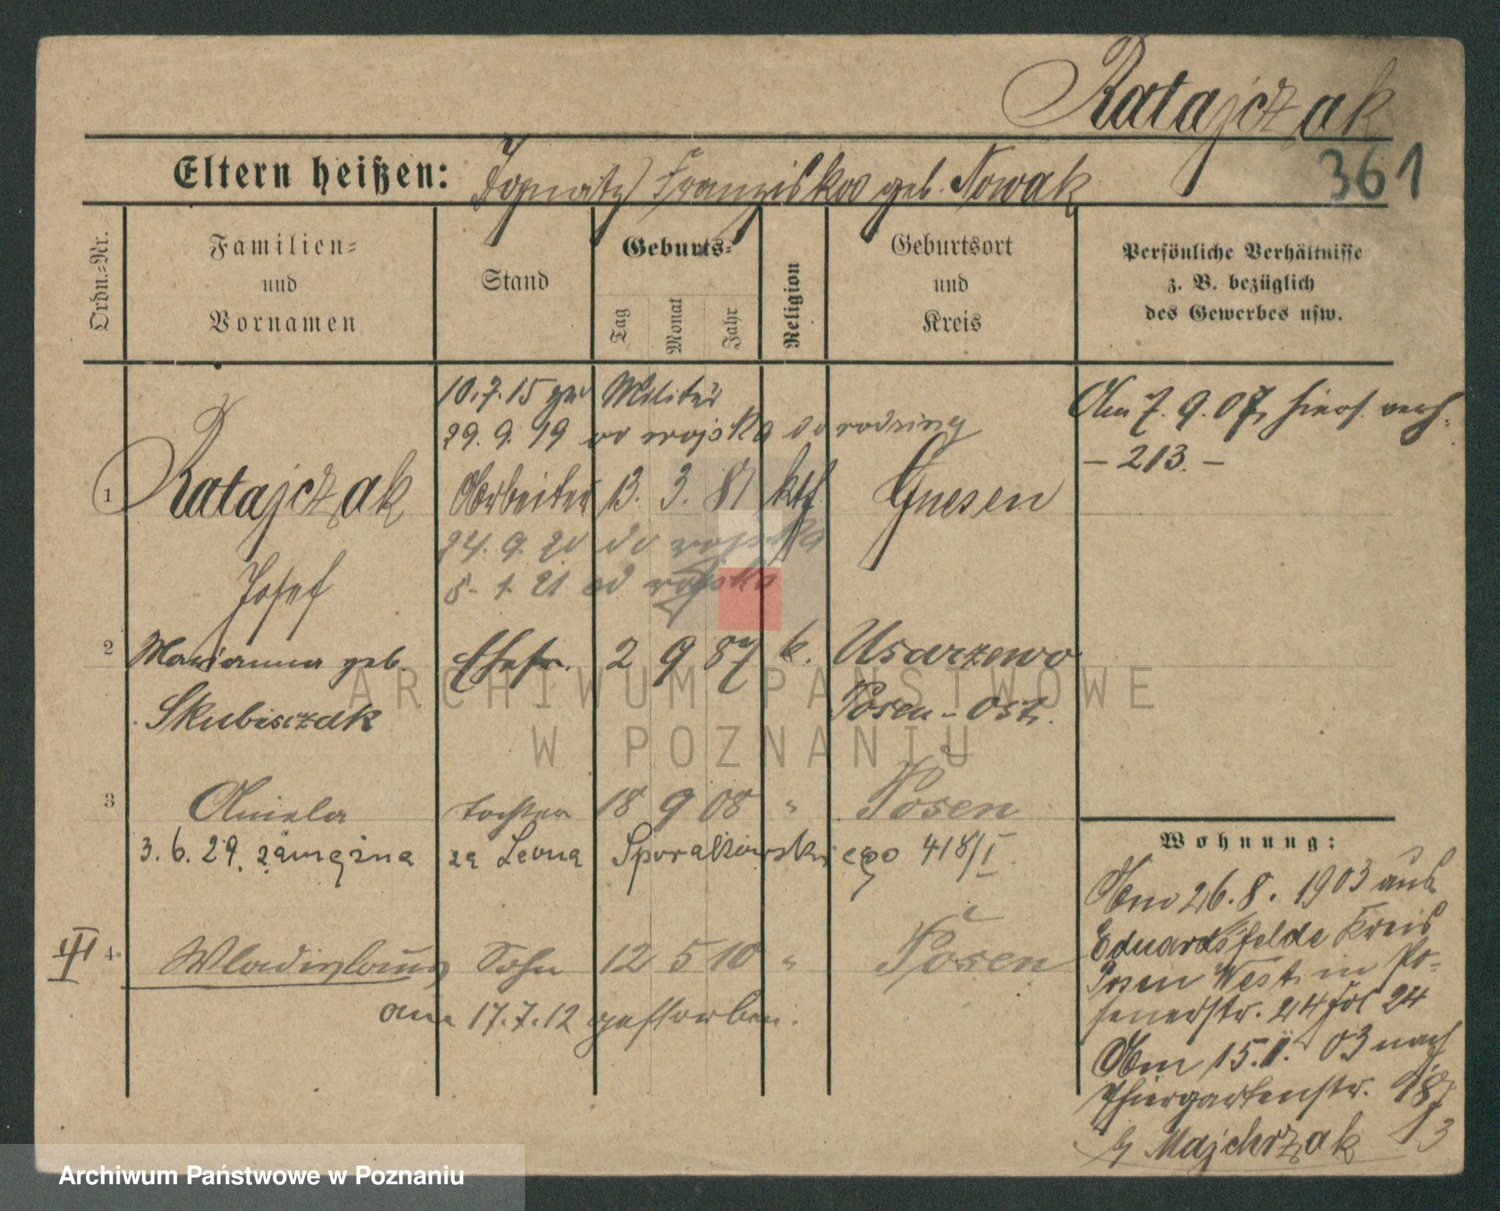 Ratajczak
361
Eltern heißen: Ignatz Franziska geb. Nowak
Ordn.-Nr.
Familien- und Vornamen
Stand
Geburts-
Tag
Monat
Jahr
Religion
Geburtsort und Kreis
Persönliche Verhältnisse z. B. bezüglich des Gewerbes usw.
10.7.15 zum Militär
29.9.19 od wojska do rodziny
Am 7.9.07 hiers. verh.
- 213. -
1 Ratajczak Arbeiter 13. 3. 81 kth Gnesen
24.9.20 do wojska
Josef 8.1.21 od wojska
2 Marianna geb. Ehefr. 2 9 87 k. Usarzewo
Skubiszak Posen-Ost.
3 Aniela Tochter 18 9 08 " Posen
3.6.29. zamężna za Leona Sporakowskiego 418/I.
III 4 Wladislaus Sohn 12 5 10 " Posen
am 17.7.12 gestorben.
Wohnung:
Am 26.8.1903 aus
Eduardsfelde Kreis
Posen West in Po-
senerstr. 24 Fol 24
Am 15.11.03 nach
Thiergartenstr. 18
b/ Majchrzak 13
ARCHIWUM PAŃSTWOWE
W POZNANIU
Archiwum Państwowe w Poznaniu